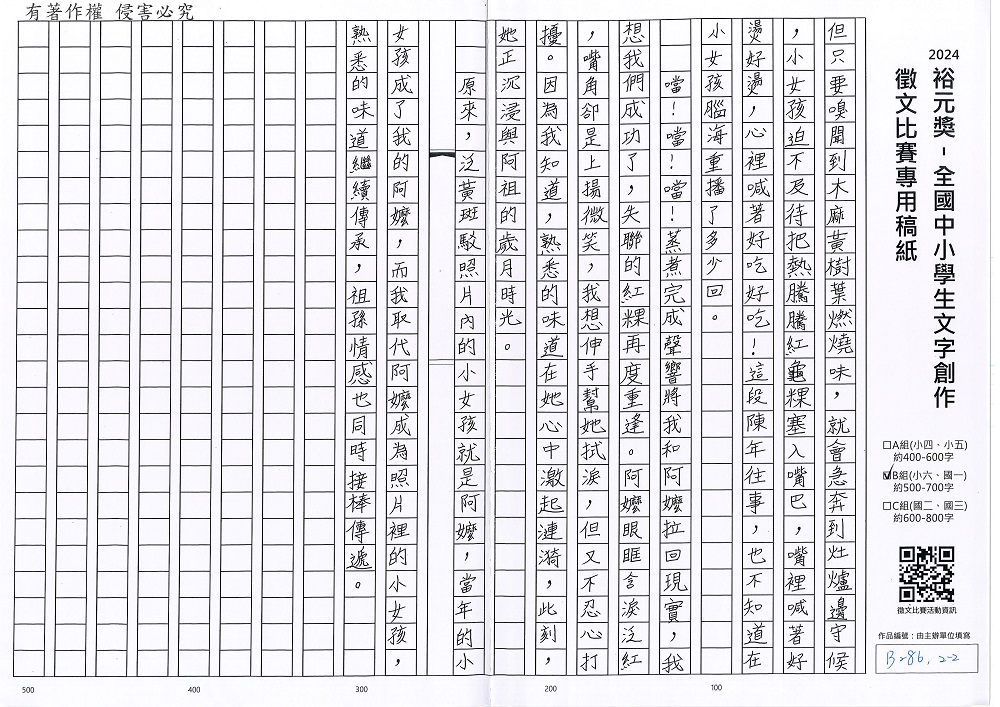 有著作權 侵害必究
2024
裕元獎－全國中小學生文字創作
徵文比賽專用稿紙
□A組(小四、小五)
約400-600字
☑B組(小六、國一)
約500-700字
□C組(國二、國三)
約600-800字
徵文比賽活動資訊
作品編號：由主辦單位填寫
B-86, 2-2
但只要嗅聞到木麻黃樹葉燃燒味，就會急奔到灶爐邊守候
，小女孩迫不及待把熱騰騰紅龜粿塞入嘴巴，嘴裡喊著好
燙好燙，心裡喊著好吃好吃！這段陳年往事，也不知道在
小女孩腦海重播了多少回。
噹！噹！噹！蒸煮完成聲響將我和阿嬤拉回現實，我
想我們成功了，失聯的紅粿再度重逢。阿嬤眼眶含淚泛紅
，嘴角卻是上揚微笑，我想伸手幫她拭淚，但又不忍心打
擾。因為我知道，熟悉的味道在她心中激起漣漪，此刻，
她正沉浸與阿祖的歲月時光。
原來，泛黃斑駁照片內的小女孩就是阿嬤，當年的小
女孩成了我的阿嬤，而我取代阿嬤成為照片裡的小女孩，
熟悉的味道繼續傳承，祖孫情感也同時接棒傳遞。
100
200
300
400
500